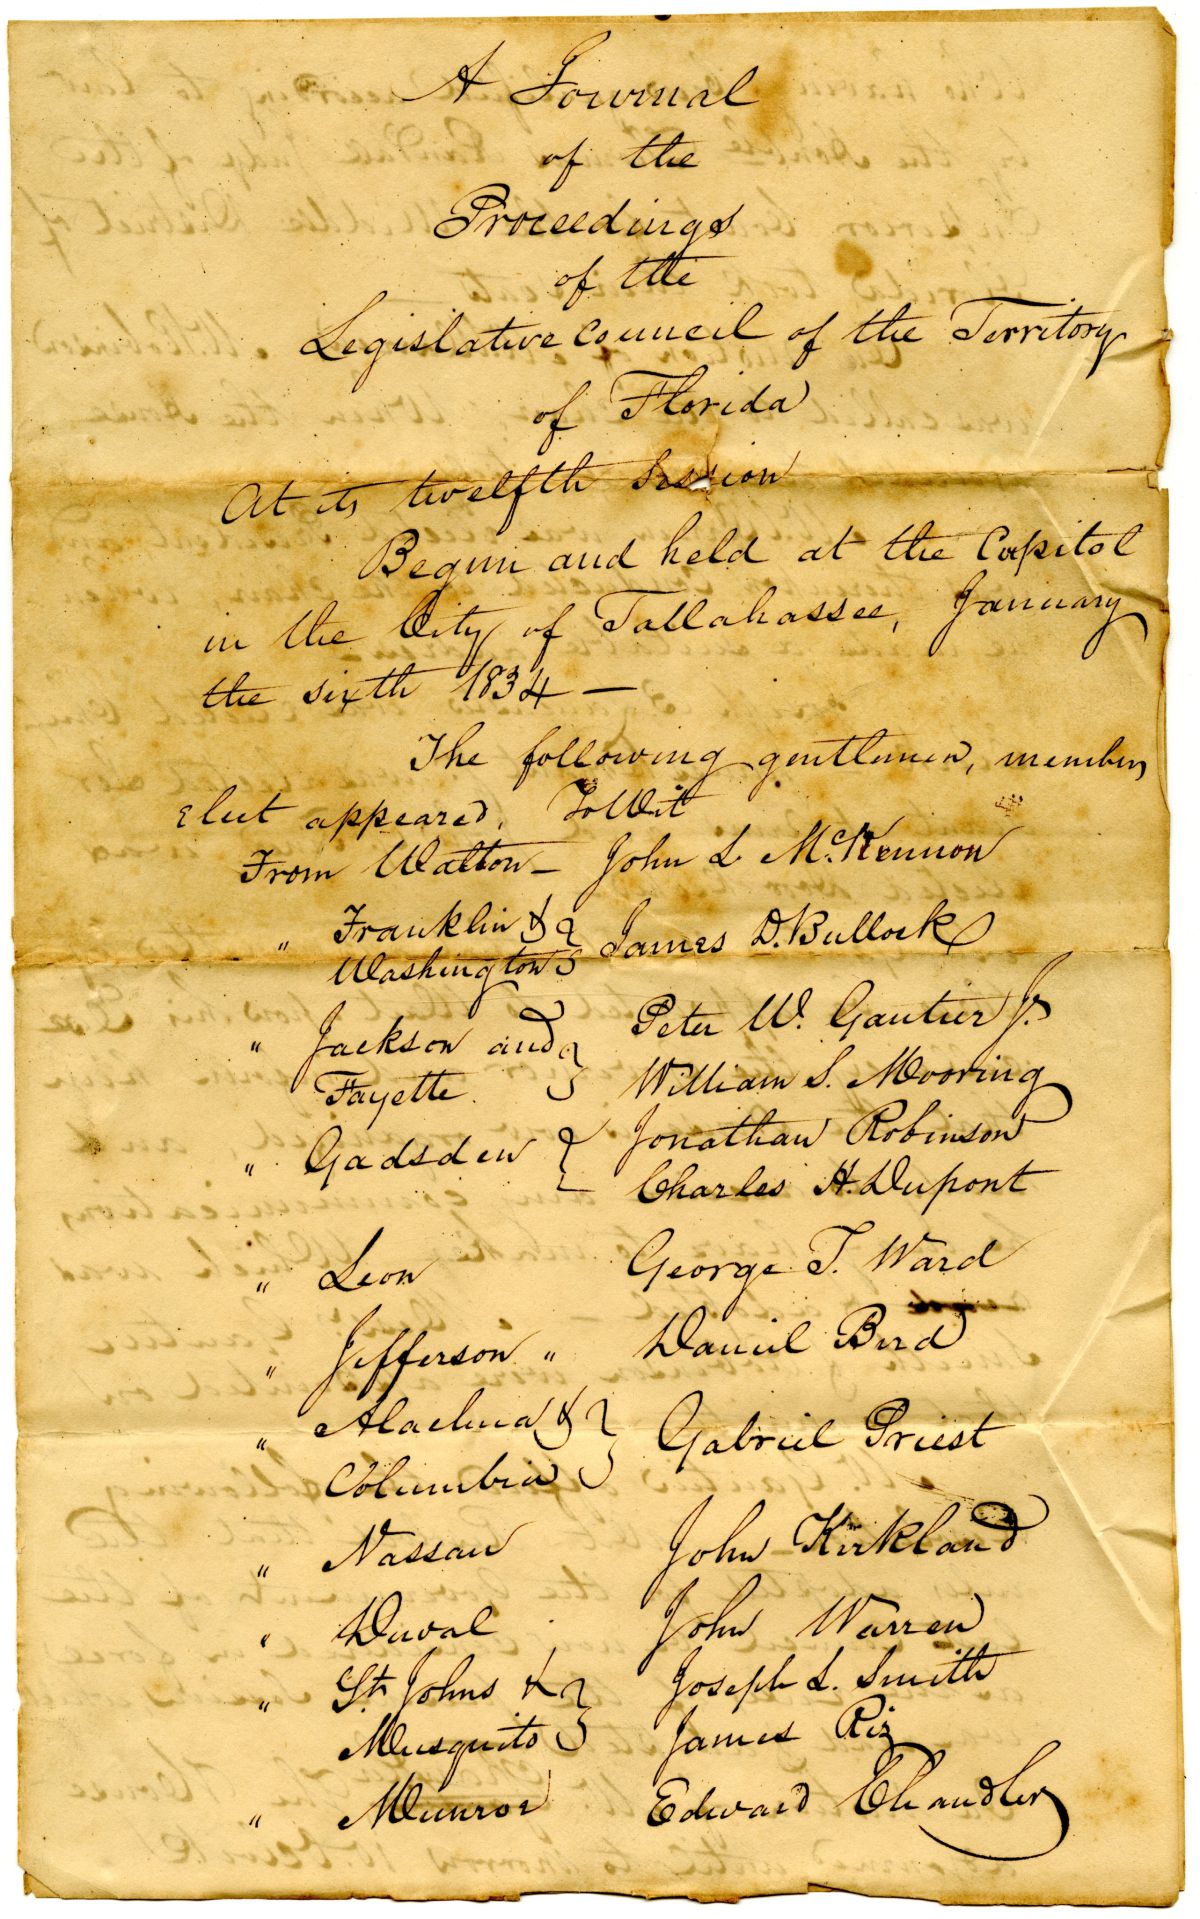 A Journal
of the
Proceedings
of the
Legislative Council of the Territory
of Florida
At its twelfth Session
Begun and held at the Capitol
in the City of Tallahassee, January
the sixth 1834 —
The following gentlemen, members
elect appeared, To Wit
From Walton — John L McKinnon
" Franklin & James D. Bullock
Washington
" Jackson and Peter W. Gautier Jr
Fayette. William S. Mooring
" Gadsden Jonathan Robinson
Charles H. Dupont
" Leon George T. Ward
" Jefferson " Daniel Bird
" Alachua & Gabriel Priest
Columbia
" Nassau John Kirkland
" Duval John Warren
" St. Johns & Joseph L. Smith
Musquito James Riz
" Munroe Edward Chandler